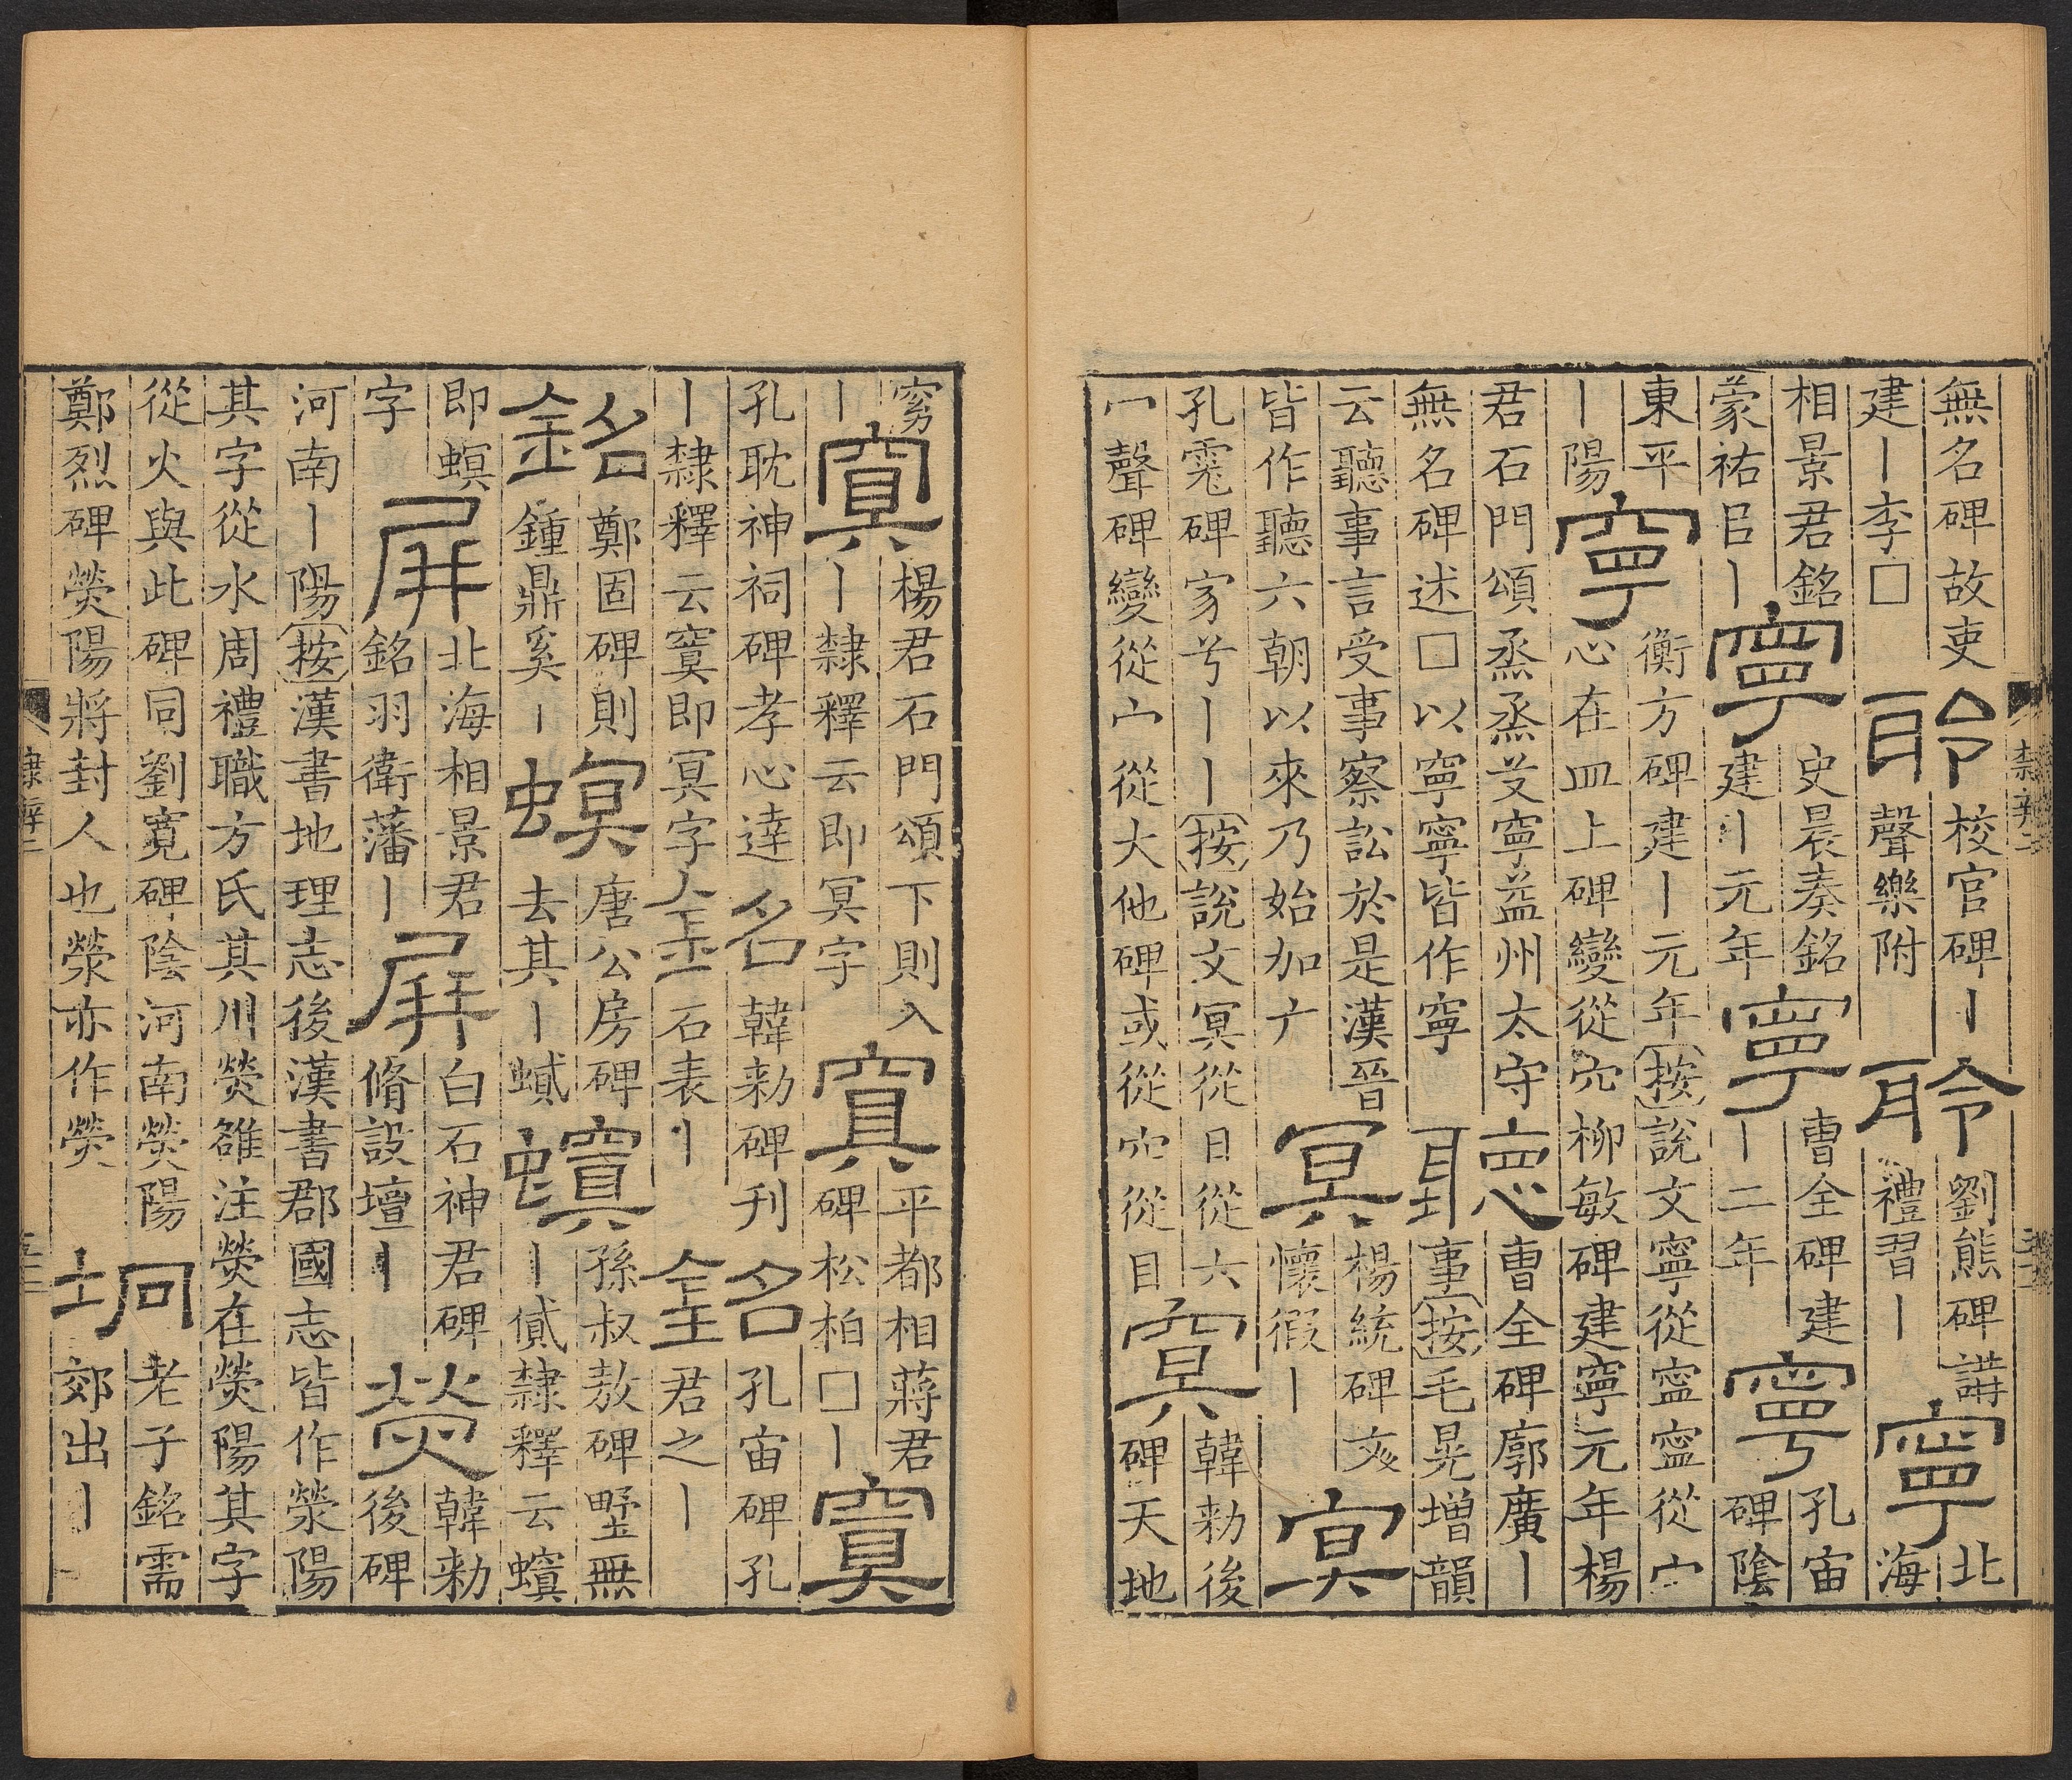 無名碑故吏建丨李□聆校官碑丨聲樂附聆劉熊碑講禮習丨寧北海
相景君銘蒙祐㠯丨寧史晨奏銘建丨元年寧曹全碑建丨二年寧孔宙碑陰
東平丨陽寧衡方碑建丨元年按說文寧從寍寍從宀心在皿上碑變從穴柳敏碑建寧元年楊
君石門頌烝烝艾寧益州太守無名碑述□以寧寧皆作寧聽曹全碑廓廣丨事按毛晃增韻
云聽事言受事察訟於是漢晉皆作聽六朝以來乃始加广冥楊統碑懷徦丨冥
孔霐碑家兮丨丨按說文冥從日從六冖聲碑變從宀從大他碑或從穴從目冥韓勑後碑天地
窈丨冥楊君石門頌下則入丨隸釋云即冥字冥平都相蔣君碑松柏□丨冥
孔耽神祠碑孝心達丨隸釋云窴即冥字銘韓勑碑刊石表丨銘孔宙碑孔君之丨
銘鄭固碑則鍾鼎奚丨螟唐公房碑去其丨蟘螟孫叔敖碑壄無丨貣隸釋云螟
即螟字屏北海相景君銘羽衛藩丨屏白石神君碑脩設壇丨熒韓勑後碑
河南丨陽按漢書地理志後漢書郡國志皆作滎陽其字從水周禮職方氏其川熒雒注熒在熒陽其字
從火與此碑同劉寬碑陰河南熒陽鄭烈碑熒陽將封人也滎亦作熒坰老子銘需郊出丨